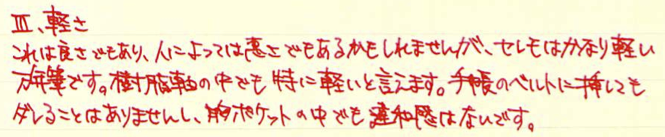 Ⅲ、軽さ
これは良さでもあり、人によっては悪さでもあるかもしれませんが、セレモはかなり軽い
万年筆です。樹脂軸の中でも特に軽いと言えます。手帳のベルトに挿しても
ダレることはありませんし、胸ポケットの中でも違和感はないです。